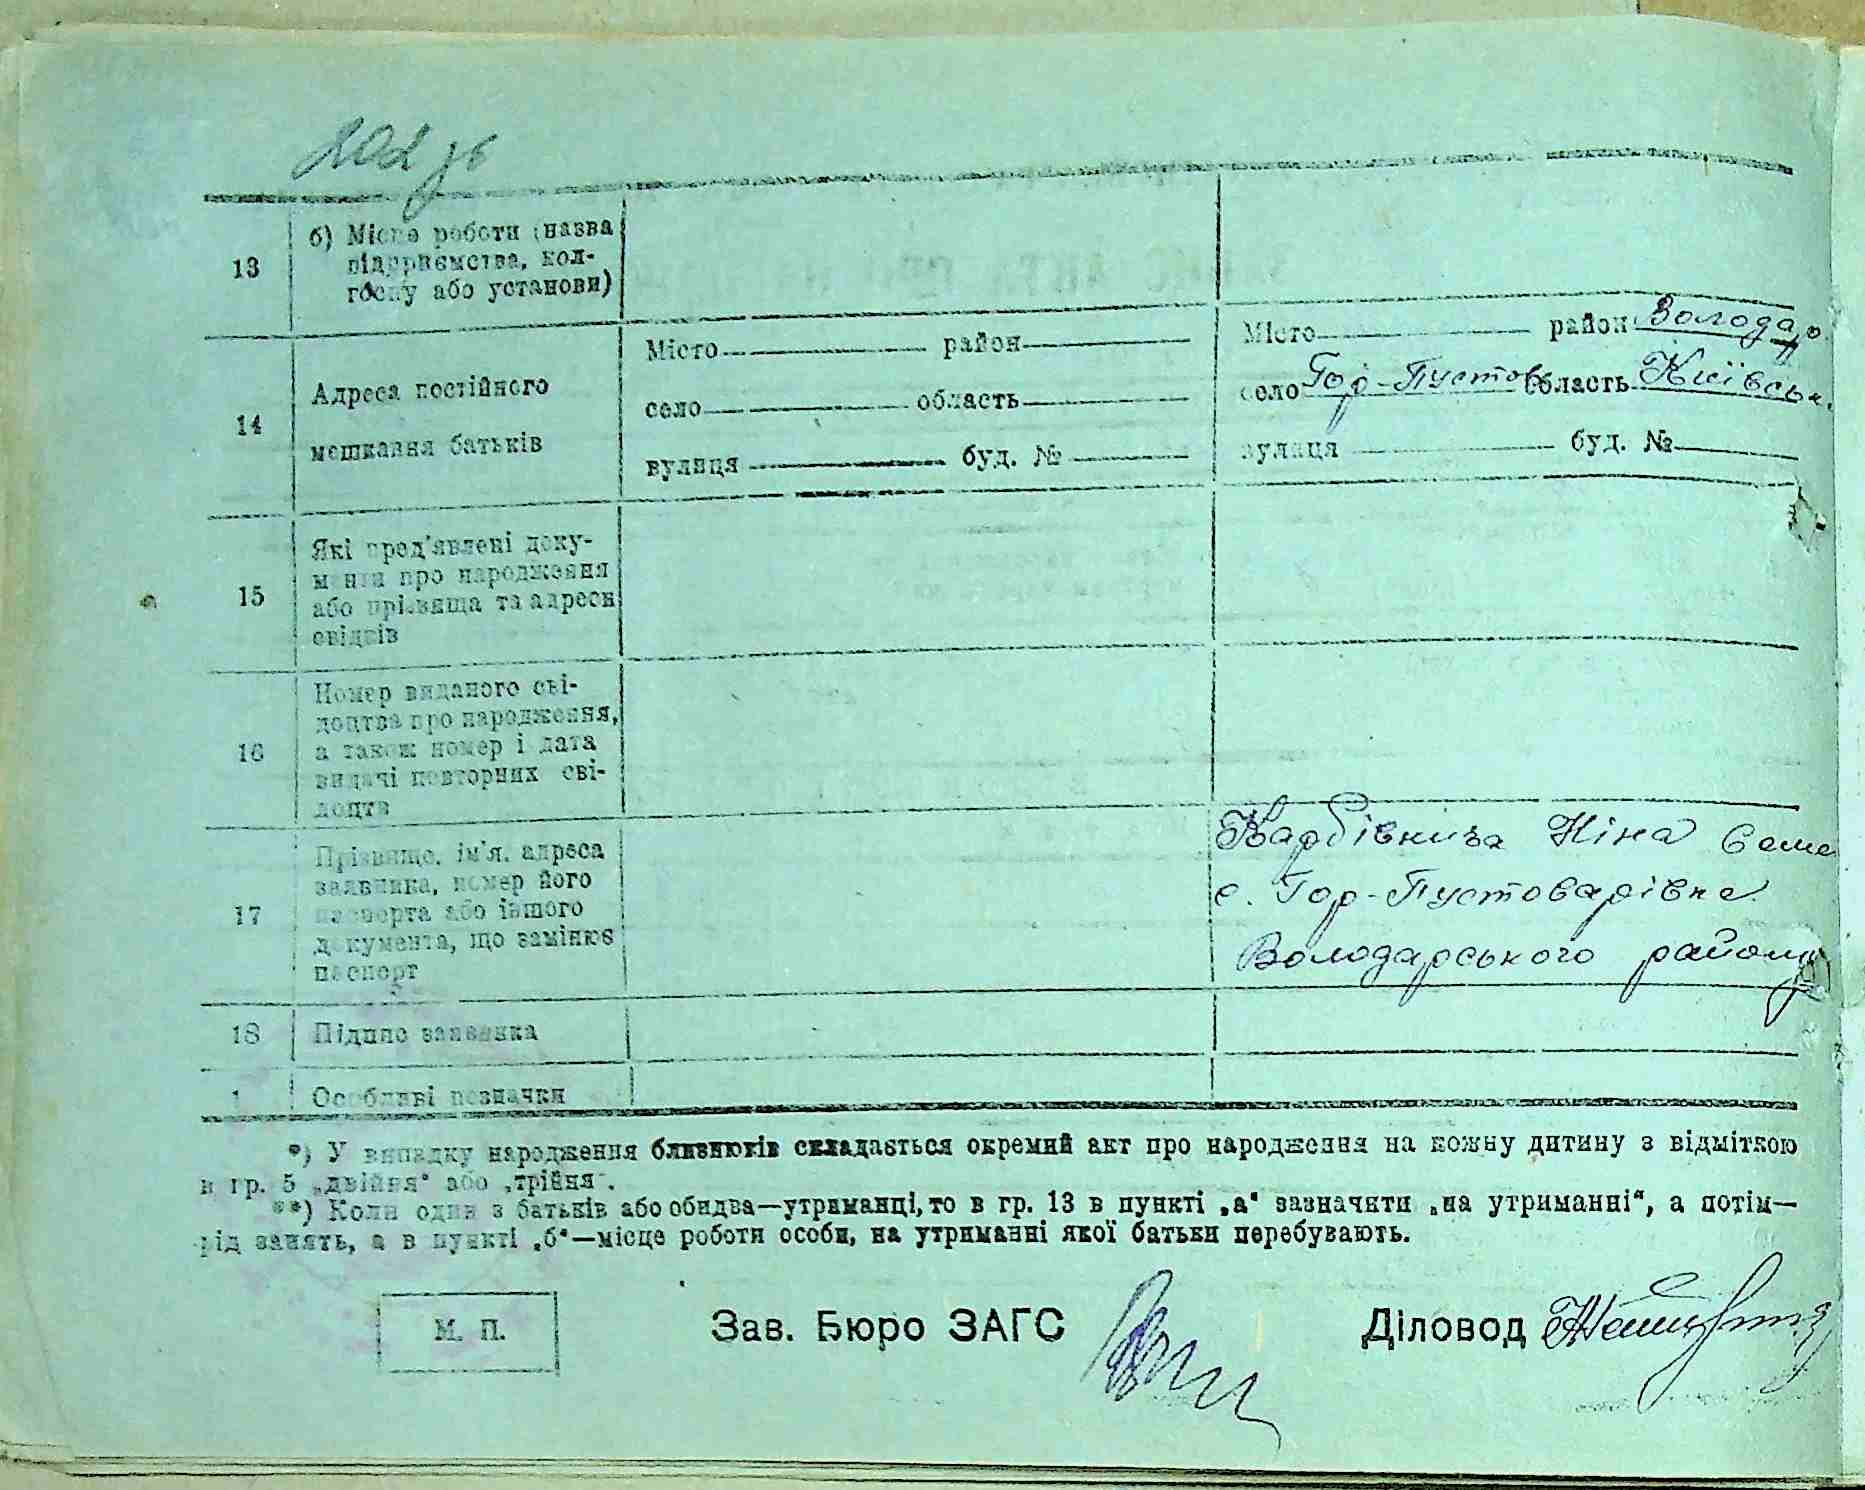 202 зв
13
б) Місце роботи (назва
підприємства, кол-
госпу або установи)
14
Адреса постійного
мешкання батьків
Місто район
село область
вулиця буд. №
Місто район Володар.
село Гор-Пустов область Київськ.
вулиця буд. №
15
Які пред'явлені доку-
менти про народження
або прізвища та адреси
свідків
16
Номер виданого сві-
доцтва про народження,
а також номер і дата
видачі повторних сві-
доцтв
17
Прізвище, ім'я, адреса
заявника, номер його
паспорта або іншого
документа, що замінює
паспорт
Карбівнича Ніна Семе
с. Гор-Пустоварівка
Володарського району
18
Підпис заявника
1
Особливі позначки
*) У випадку народження близнюків складається окремий акт про народження на кожну дитину з відміткою
в гр. 5 „двійня“ або „трійня“.
**) Коли один з батьків або обидва—утриманці, то в гр. 13 в пункті „а“ зазначити „на утриманні“, а потім—
рід занять, а в пункті „б“—місце роботи особи, на утриманні якої батьки перебувають.
М. П.
Зав. Бюро ЗАГС
Діловод